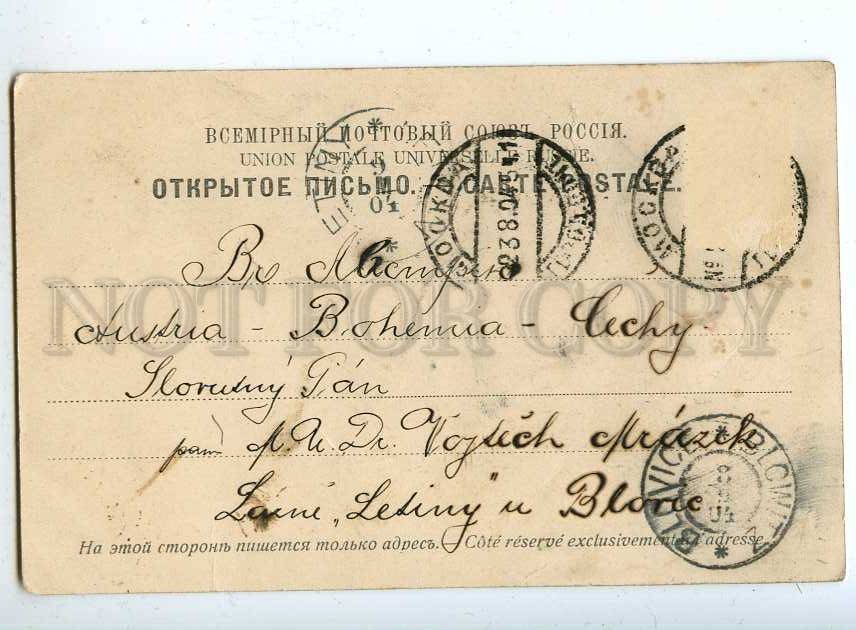 ВСЕМІРНЫЙ ПОЧТОВЫЙ СОЮЗЪ. РОССІЯ.
UNION POSTALE UNIVERSELLE RUSSIE.
ОТКРЫТОЕ ПИСЬМО. — CARTE POSTALE.
ETINY
9
04
МОСКВА
23.8.04
МОСКВА
Въ Австрію
Austria - Bohemia - Čechy
Slovutný Pán
pan M. U. Dr. Vojtěch Mrázek
Lázně „Letiny" u Blovic
BLOVICE BLOWITZ
04
На этой сторонѣ пишется только адресъ. — Côté réservé exclusivement à adresse.
NOT FOR COPY